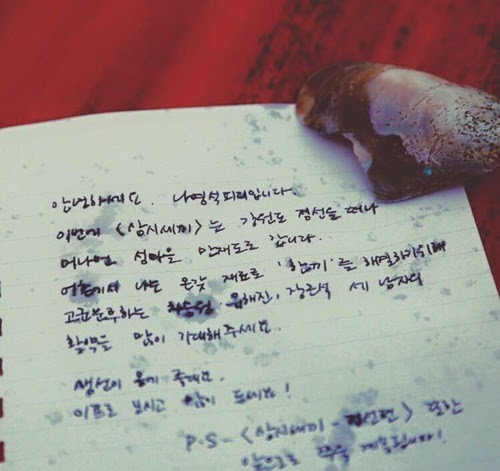 안녕하세요. 나영석피디입니다.
이번에 <삼시세끼>는 강원도 정선을 떠나
머나먼 섬마을 만재도로 갑니다.
어촌에서 나는 온갖 재료로 '한끼'를 해결하기위해
고군분투하는 차승원, 유해진, 장근석 세 남자의
활약을 많이 기대해주세요.
생선이 몸에 좋대요.
이프로 보시고 많이 드세요!
P.S - <삼시세끼 - 정선편> 또한
앞으로 쭈욱 계속됩니다!